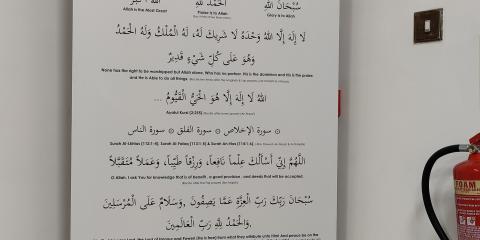 الله أكبر
الْحَمْدُ لِلَّهِ
سُبْحَانَ اللَّهِ
Allah is the Most Great
Praise is to Allah
Glory is to Allah
لَا إِلَهَ إِلَّا اللهُ وَحْدَهُ لَا شَرِيكَ لَهُ، لَهُ الْمُلْكُ وَلَهُ الْحَمْدُ
وَهُوَ عَلَى كُلِّ شَيْءٍ قَدِيرٌ
None has the right to be worshipped but Allah alone, Who has no partner. His is the dominion and His is the praise
and He is Able to do all things.
اللهُ لَا إِلَهَ إِلَّا هُوَ الْحَيُّ الْقَيُّومُ ...
Ayatul Kursi (2:255)
۞ سورة الإخلاص ۞ سورة الفلق ۞ سورة الناس
Surah Al-Ikhlas (112:1-4), Surah Al-Falaq (113:1-5) & Surah An-Nas (114:1-6)
اللَّهُمَّ إِنِّي أَسْأَلُكَ عِلْماً نَافِعاً، وَرِزْقاً طَيِّباً، وَعَمَلاً مُتَقَبَّلاً
O Allah, I ask You for knowledge that is of benefit, a good provision, and deeds that will be accepted.
سُبْحَانَ رَبِّكَ رَبِّ الْعِزَّةِ عَمَّا يَصِفُونَ ,وَسَلَامٌ عَلَى الْمُرْسَلِينَ
,وَالْحَمْدُ لِلَّهِ رَبِّ الْعَالَمِينَ
FOAM